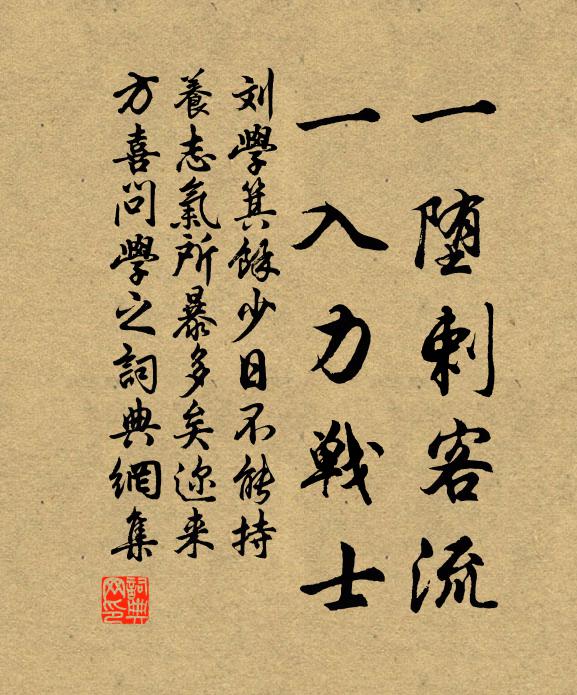 一堕刺客流
一入力戦士
刘學箕餘少日不能持
養志氣所暴多矣迩来
方喜問學之詞典網集
詞典
网印